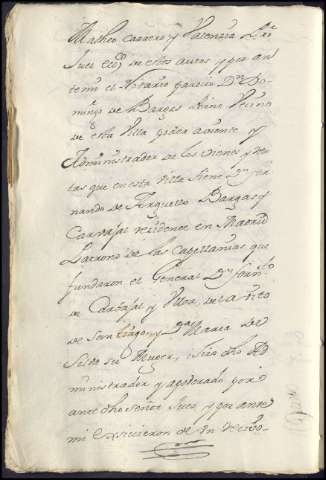 Matheo Carrero y Valencia
Juez ecco en estos autos y por an
te mi el Notario parecio Dn Do
mingo de Bargas vino Vecino
de esta Villa poder aviente y
Administrador de los vienes y Ren
tas que en esta Villa tiene Dn fer
nando de Bargas y
Carvajal residente en Madrid
Patrono de las Capellanias que
fundaron el General Dn
de Carvajal y Ulloa, de la orn
de Santiago, y Da Maria de
su Muger, dho Ad
ministrador y apoderado por
ante dho señor Juez y por ante
mi de Un